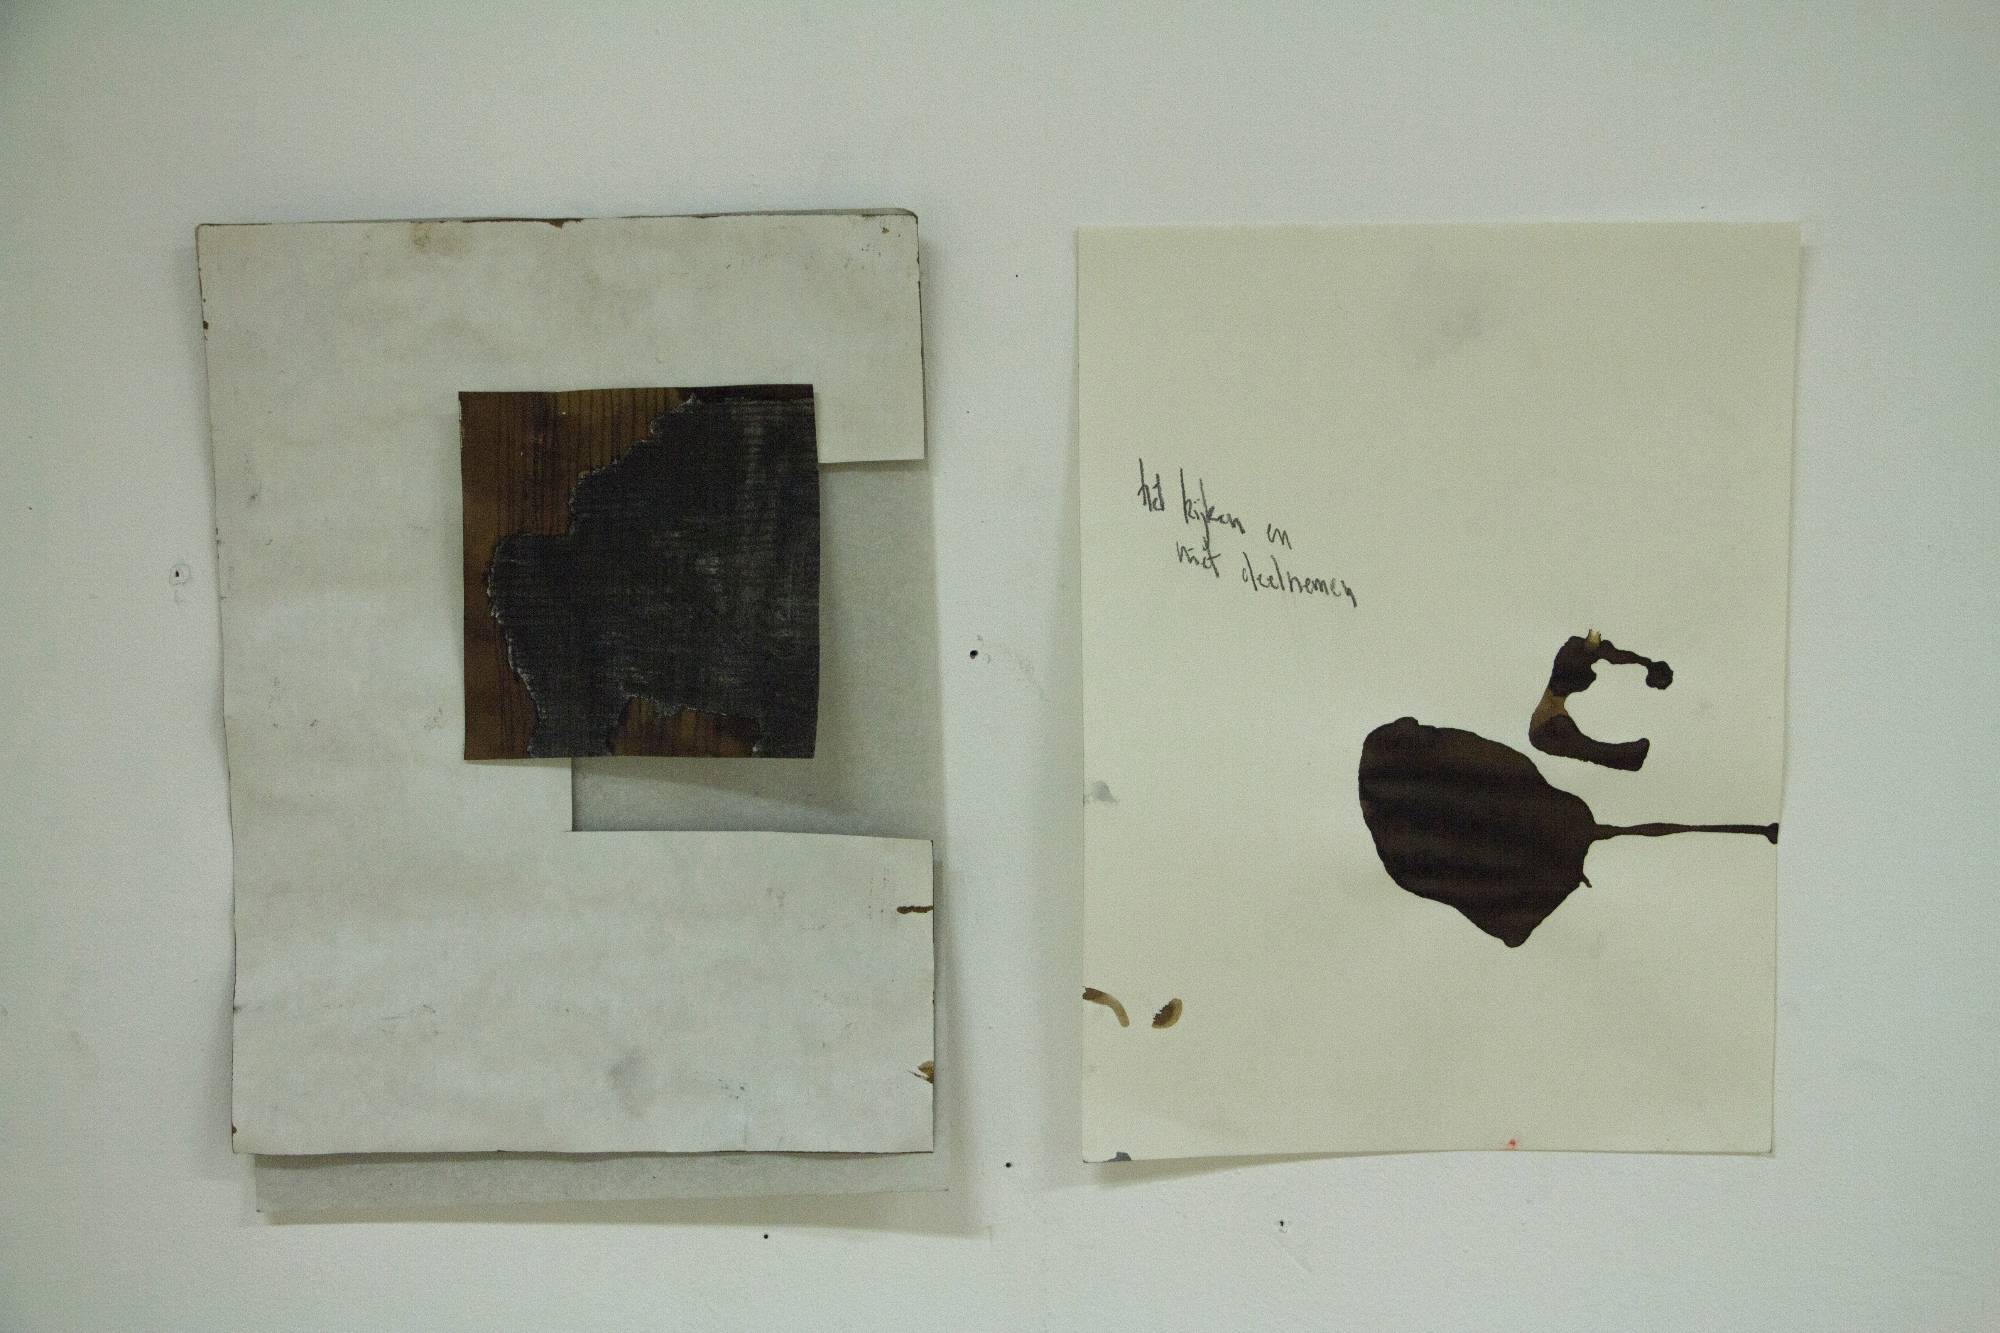 het kijken en
niet deelnemen